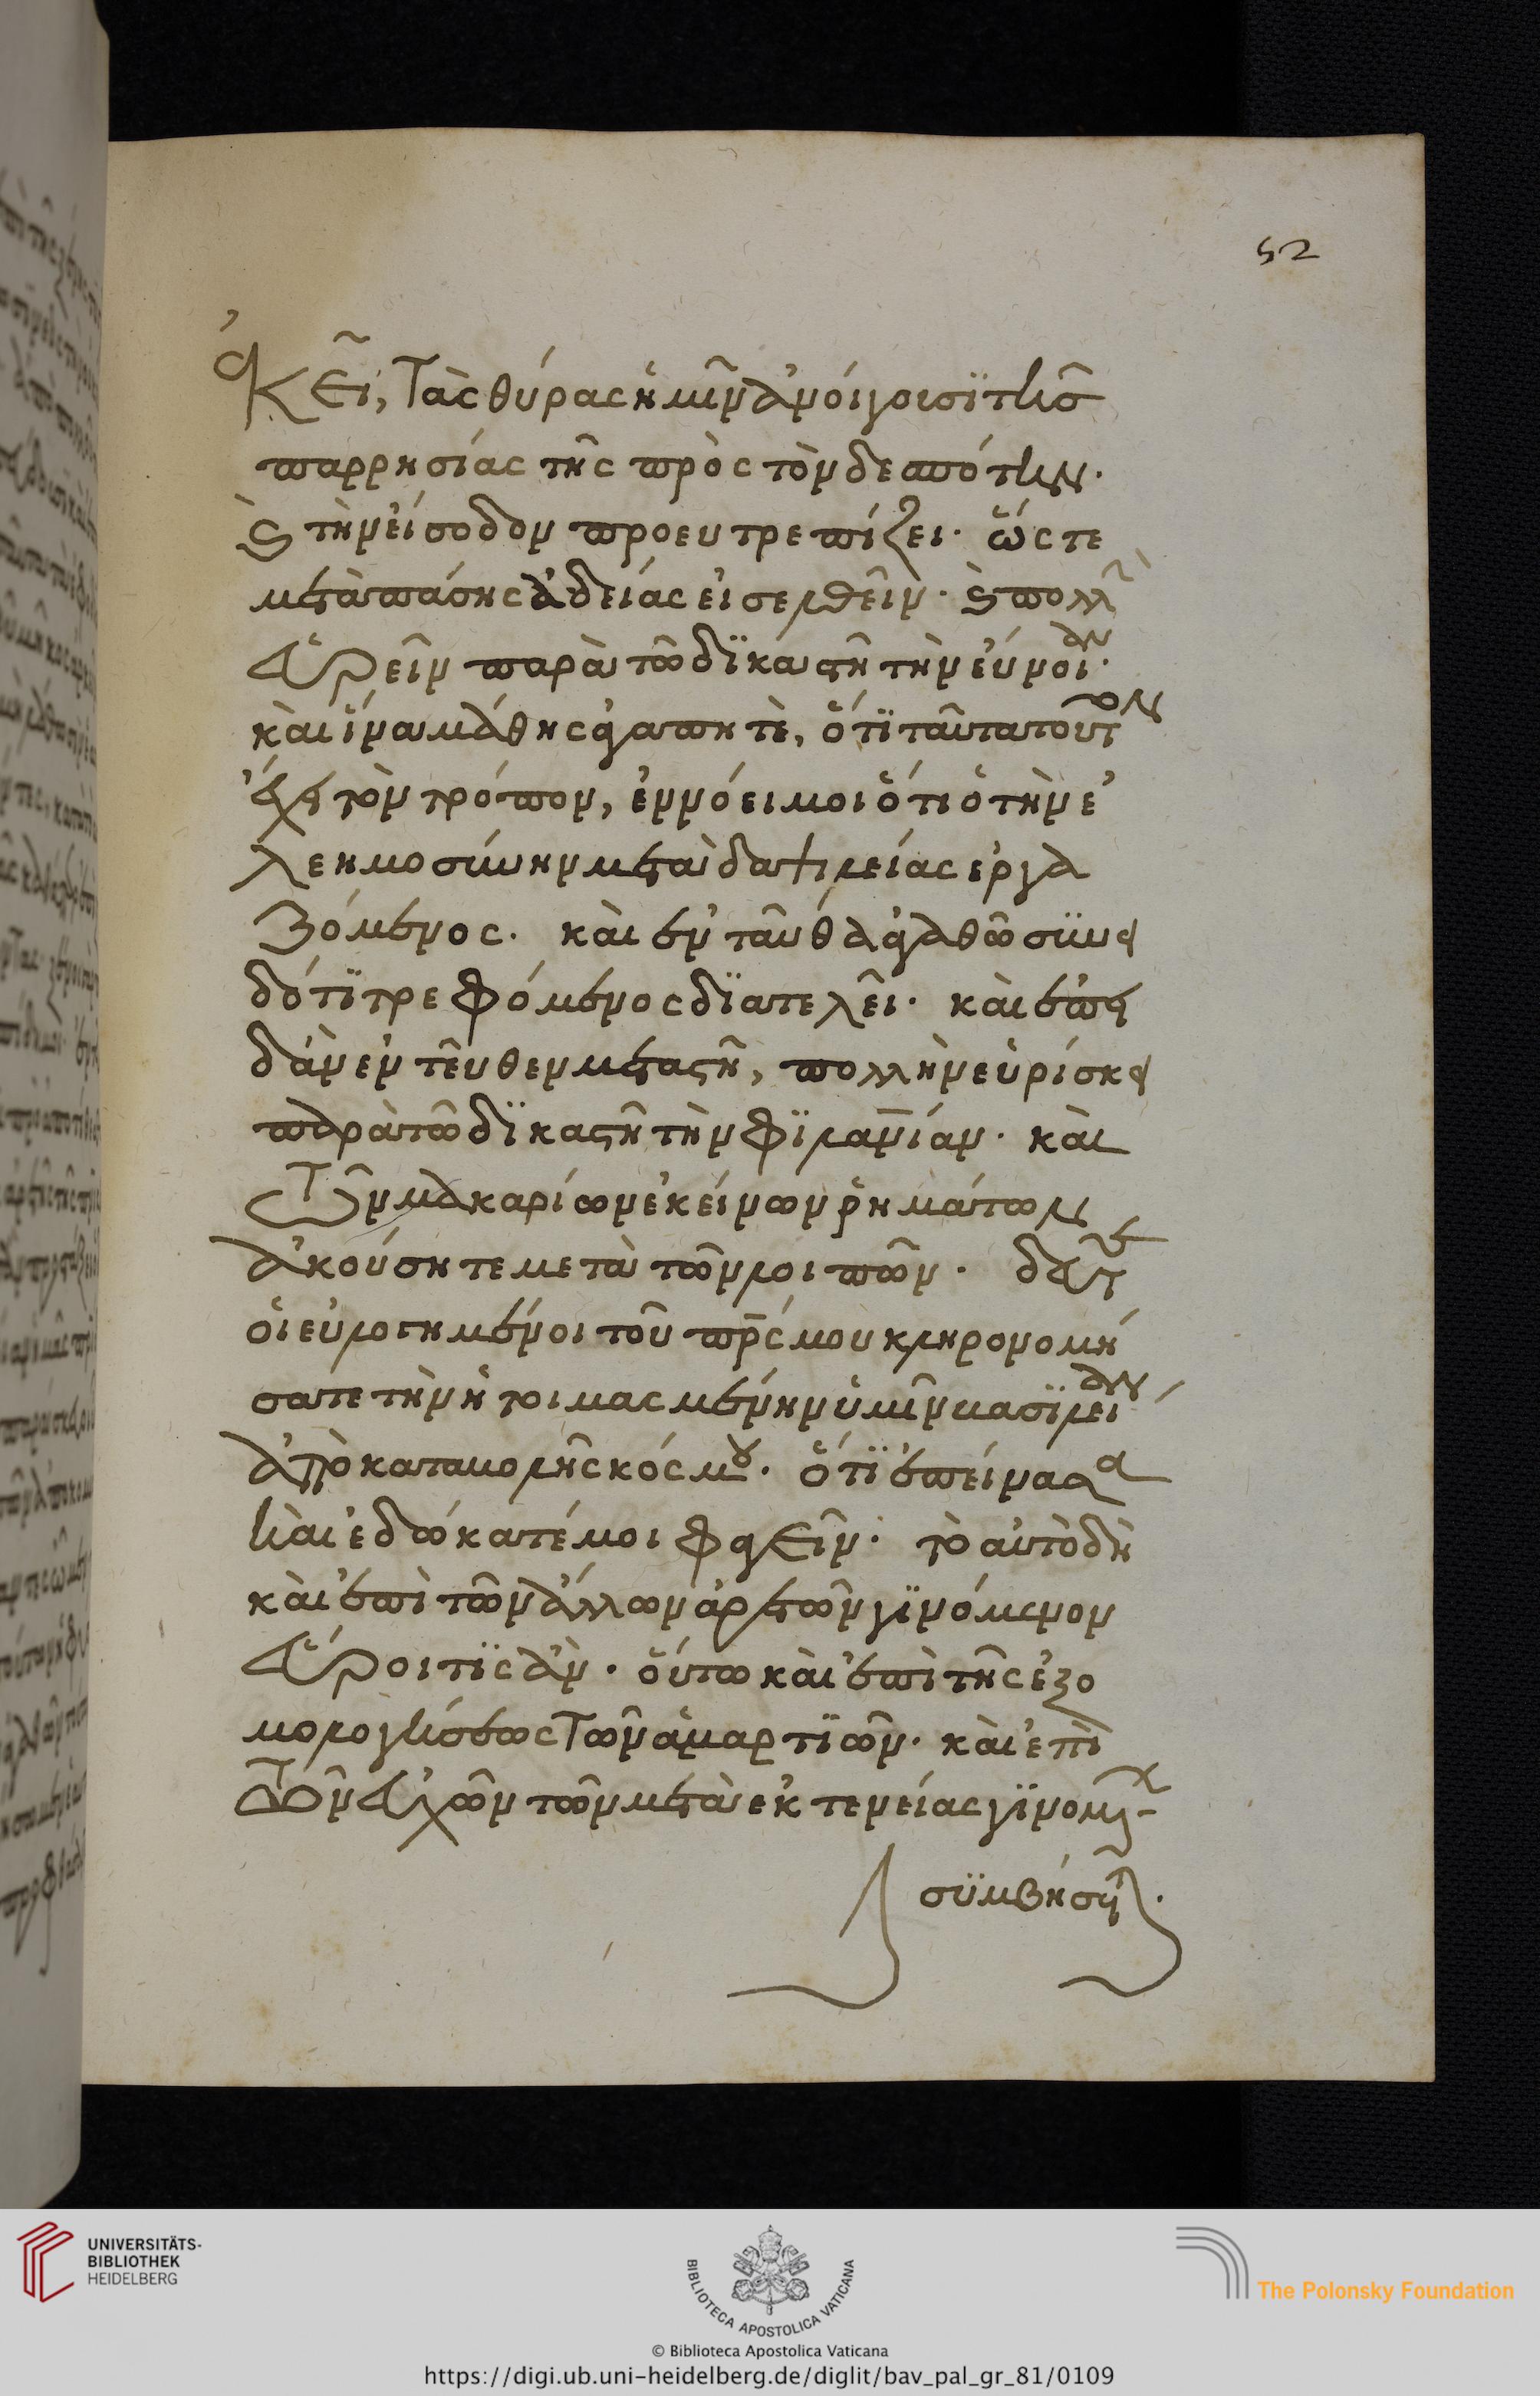 52
ἐκεῖ, τὰς θύρας ἡμῖν ἀνοίγουσϊ τῆσ
παρρησίας τῆς πρὸς τὸν δεσπότην·
καὶ τὴν εἴσοδον προευτρεπίζει· ὥς τε
μετὰ πάσης ἀδείας εἰσελθεῖν· καὶ πολλὴν
εὑρεῖν παρὰ τῶ δϊκαστῆ τὴν εὔνοιαν·
καὶ ἵνα μάθης ἀγαπητὲ, ὅτϊ ταῦτα τοῦτον
ἔχει τὸν τρόπον, ἐννόει μοι ὅτι ὁ τὴν ἐ
λεημοσύνην μετὰ δαψιλείας ἐργα
ζόμενος· καὶ ἐνταῦθα ἀγαθῶ συνει
δότϊ τρεφόμενος δϊατελεῖ· καὶ ἐπει
δὰν ἐντεῦθεν μεταστῆ, πολλὴν εὑρίσκει
παρὰ τῶ δϊκαστῆ τὴν φϊλανίαν· καὶ
τῶν μακαρίων ἐκείνων ῥημάτων
ἀκούσητε μετὰ τῶν λοιπῶν· δεῦτε
οἱ εὐλογημένοι τοῦ πρς μου κληρονομή
σατε τὴν ἡτοιμασμένην ὑμῖν βασϊλείαν
ἀπὸ καταβολῆς κόσμου· ὅτϊ ἐπείνασα
καὶ ἐδώκατέ μοι φαγεῖν· τὸ αὐτὸ δὴ
καὶ ἐπὶ τῶν ἄλλων ἀρετῶν γϊνόμενον
εὕροι τϊς ἂν· οὕτω καὶ ἐπὶ τῆς ἐξο
μολογήσεως τῶν ἁμαρτϊῶν· καὶ ἐπὶ
τῶν εὐχῶν τῶν μετὰ ἐκτενείας γϊνομένων
συμβήσεται·
UNIVERSITÄTS-
BIBLIOTHEK
HEIDELBERG
BIBLIOTECA APOSTOLICA VATICANA
The Polonsky Foundation
© Biblioteca Apostolica Vaticana
https://digi.ub.uni-heidelberg.de/diglit/bav_pal_gr_81/0109